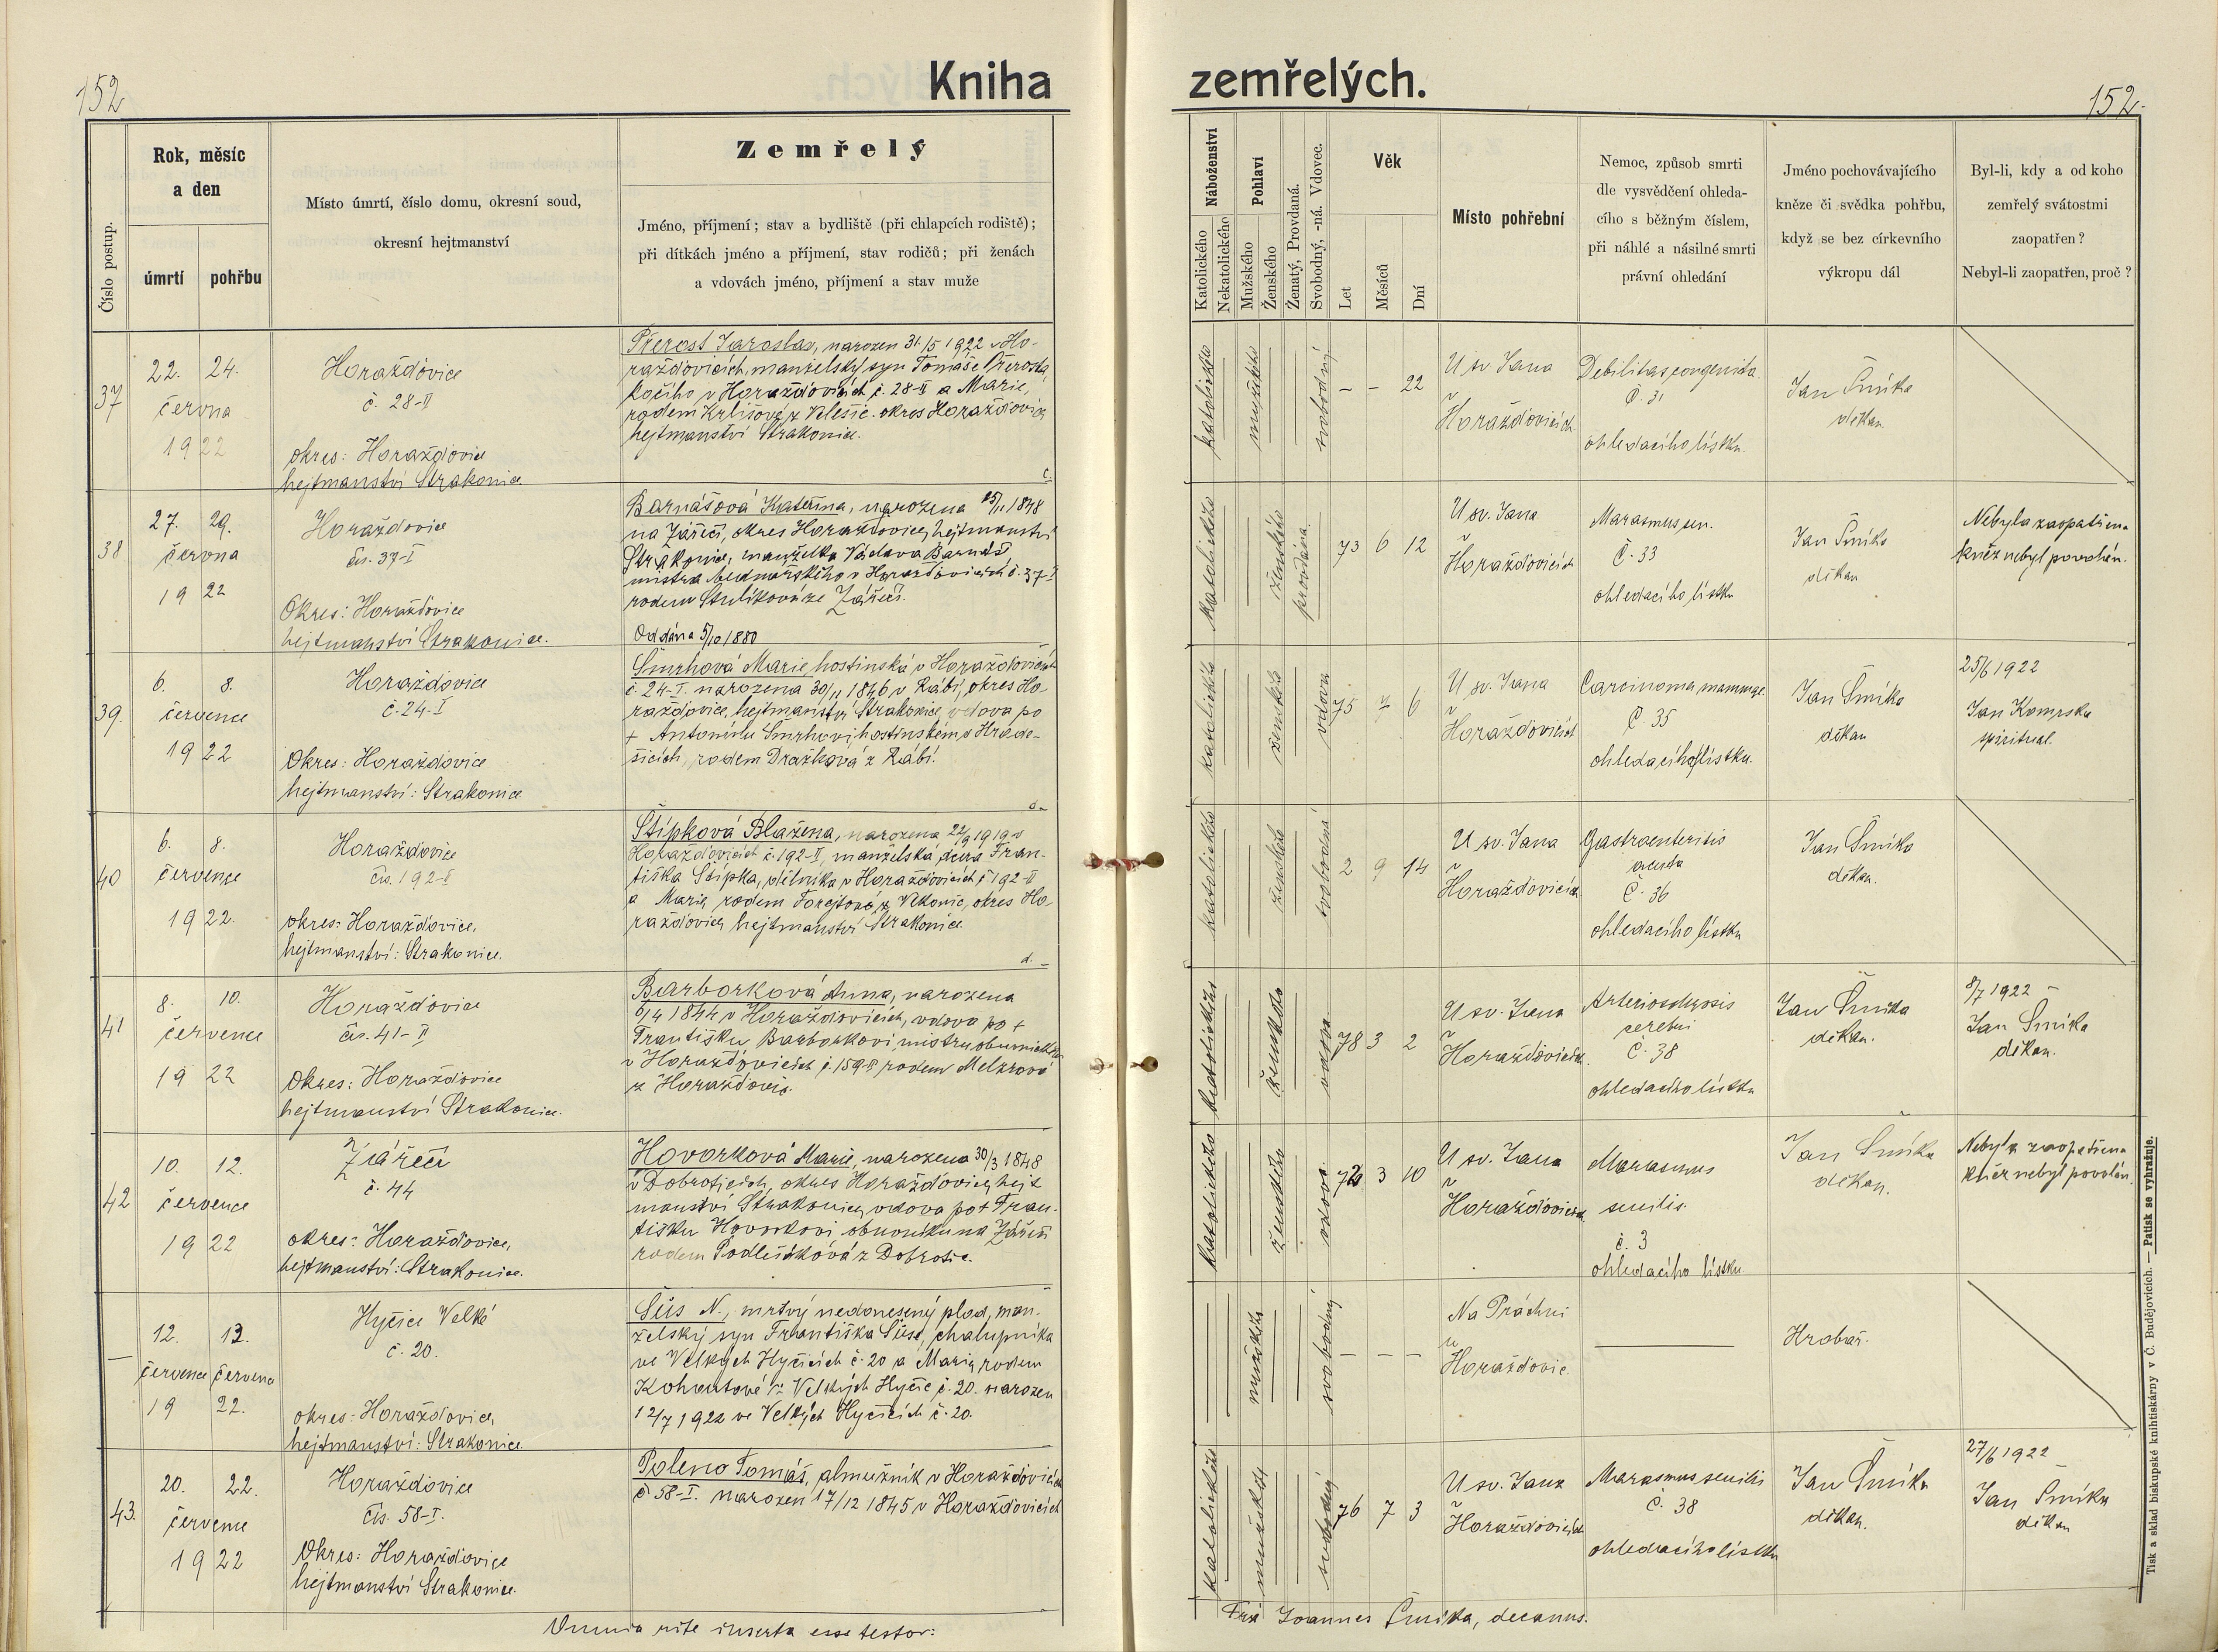 152
Kniha
Číslo postup.
Rok, měsíc
a den
úmrtí
pohřbu
Místo úmrtí, číslo domu, okresní soud,
okresní hejtmanství
Zemřelý
Jméno, příjmení; stav a bydliště (při chlapcích rodiště);
při dítkách jméno a příjmení, stav rodičů; při ženách
a vdovách jméno, příjmení a stav muže
37
22. 24.
června
1922
Horažďovice
č. 28-II
okres: Horažďovice
hejtmanství Strakonice.
Přerost Jaroslav, narozen 31/5 1922 v Ho-
raždovicích, manželský syn Tomáše Přerosta
kočího v Horažďovicích č. 28-II a Marie,
rodem z okres Horažďovice
hejtmanství Strakonice.
38
27. 29.
června
1922
Horažďovice
čís. 37-I
Okres: Horažďovice
hejtmanství Strakonice.
Barnášová Kateřina, narozena 15/11 1848
na Zářečí, okres Horažďovice, hejtmanství
Strakonice, manželka Václava Barnáš
mistra bednářského v Horažďovicích č. 37-I
rodem ze Zářečí.
Oddána 5/10 1880
39.
6. 8.
července
1922
Horažďovice
č. 24-I
Okres: Horažďovice
hejtmanství: Strakonice
Šmrhová Marie, hostinská v Horažďovicích
č. 24-I. narozena 30/11 1846 v Rábí, okres Ho-
raždovice, hejtmanství Strakonice, vdova po
+ Antonínu Šmrhovi, hostinském v Hrade-
šicích, rodem Dražková z Rábí.
40
6. 8.
července
1922.
Horažďovice
čís. 192-II
okres: Horažďovice,
hejtmanství: Strakonice.
Štípková Blažena, narozena 22/9 1919 v
Horažďovicích č. 192-II, manželská dcera Fran-
tiška Štípka, dělníka v Horažďovicích č 192-II
a Marie, rodem Forejtové z okres Ho-
raždovice, hejtmanství Strakonice
41
8. 10.
července
1922
Horažďovice
čís. 41-II
Okres: Horažďovice
hejtmanství Strakonice.
Barborková Anna, narozena
6/4 1844 v Horažďovicích, vdova po +
Františku Barborkovi, mistru obuvnickém
v Horažďovicích č. 159-II rodem Melzrová
z Horažďovic.
42
10. 12.
července
1922
Zářečí
č. 44
okres: Horažďovice,
hejtmanství: Strakonice.
Hovorková Marie, narozena 30/3 1848
v Dobroticích, okres Horažďovice, hejt
manství Strakonice, vdova po + Fran-
tišku Hovorkovi obuvníku na Zářečí
rodem Podlešáková z Dobrotic.
12. 13.
července července
19 22.
Hyčice Velké
č. 20.
okres: Horažďovice,
hejtmanství: Strakonice
Süs N., mrtvý nedonesený plod, man-
želský syn Františka Süse, chalupníka
ve Velkých Hyčicích č. 20 a Marie, rodem
Kohoutové z Velkých Hyčic č. 20. narozen
12/7 1922 ve Velkých Hyčicích č. 20.
43.
20. 22.
července
1922
Horažďovice
čís. 58-I.
Okres: Horažďovice
hejtmanství Strakonice.
Poleno Tomáš, almužník v Horažďovicích
č 58-I. narozen 17/12 1845 v Horažďovicích
Omnia rite inserta esse testor:
zemřelých.
152.
Náboženství
Katolického
Nekatolického
Pohlaví
Mužského
Ženského
Ženatý, Provdaná.
Svobodný, -ná. Vdovec.
Věk
Let
Měsíců
Dní
Místo pohřební
Nemoc, způsob smrti
dle vysvědčení ohleda-
cího s běžným číslem,
při náhlé a násilné smrti
právní ohledání
Jméno pochovávajícího
kněze či svědka pohřbu,
když se bez církevního
výkropu dál
Byl-li, kdy a od koho
zemřelý svátostmi
zaopatřen?
Nebyl-li zaopatřen, proč?
katolického
mužského
svobodný
- - 22
U sv. Jana
v
Horažďovicích
Debilitas congenita.
Č. 31
ohledacího lístku.
Jan Šmíka
děkan
katolického
ženského
provdána.
73 6 12
U sv. Jana
v
Horažďovicích
Marasmus sen.
Č. 33
ohledacího lístku
Jan Šmíka
děkan
Nebyla zaopatřena
kněz nebyl povolán.
katolického
ženského
vdova
75 7 6
U sv. Jana
v
Horažďovicích
Carcinoma mammae
Č. 35
ohledacího lístku.
Jan Šmíka
děkan
25/6 1922
Jan Komrska
spirituál.
katolického
ženského
svobodná
2 9 14
U sv. Jana
v
Horažďovicích
Gastroenteritis
acuta
Č. 36
ohledacího lístku
Jan Šmíka
děkan.
katolického
ženského
vdova
78 3 2
U sv. Jana
v
Horažďovicích
Arteriosclerosis
cerebri
Č. 38
ohledacího lístku
Jan Šmíka
děkan.
8/7 1922 -
Jan Šmíka
děkan.
katolického
ženského
vdova
3 10
U sv. Jana
v
Horažďovicích
Marasmus
senilis
č. 3
ohledacího lístku
Jan Šmíka
děkan.
Nebyla zaopatřena
kněz nebyl povolán.
mužského
svobodný
- - -
Na Práchni
u
Horažďovic.
Hrobař.
katolického
mužského
svobodný
76 7 3
U sv. Jana
v
Horažďovicích
Marasmus senilis
Č. 38
ohledacího lístku
Jan Šmíka
děkan.
27/6 1922
Jan Šmíka
děkan
Joannes Šmíka, decanus.
Tisk a sklad biskupské knihtiskárny v Č. Budějovicích. — Patisk se vyhražuje.